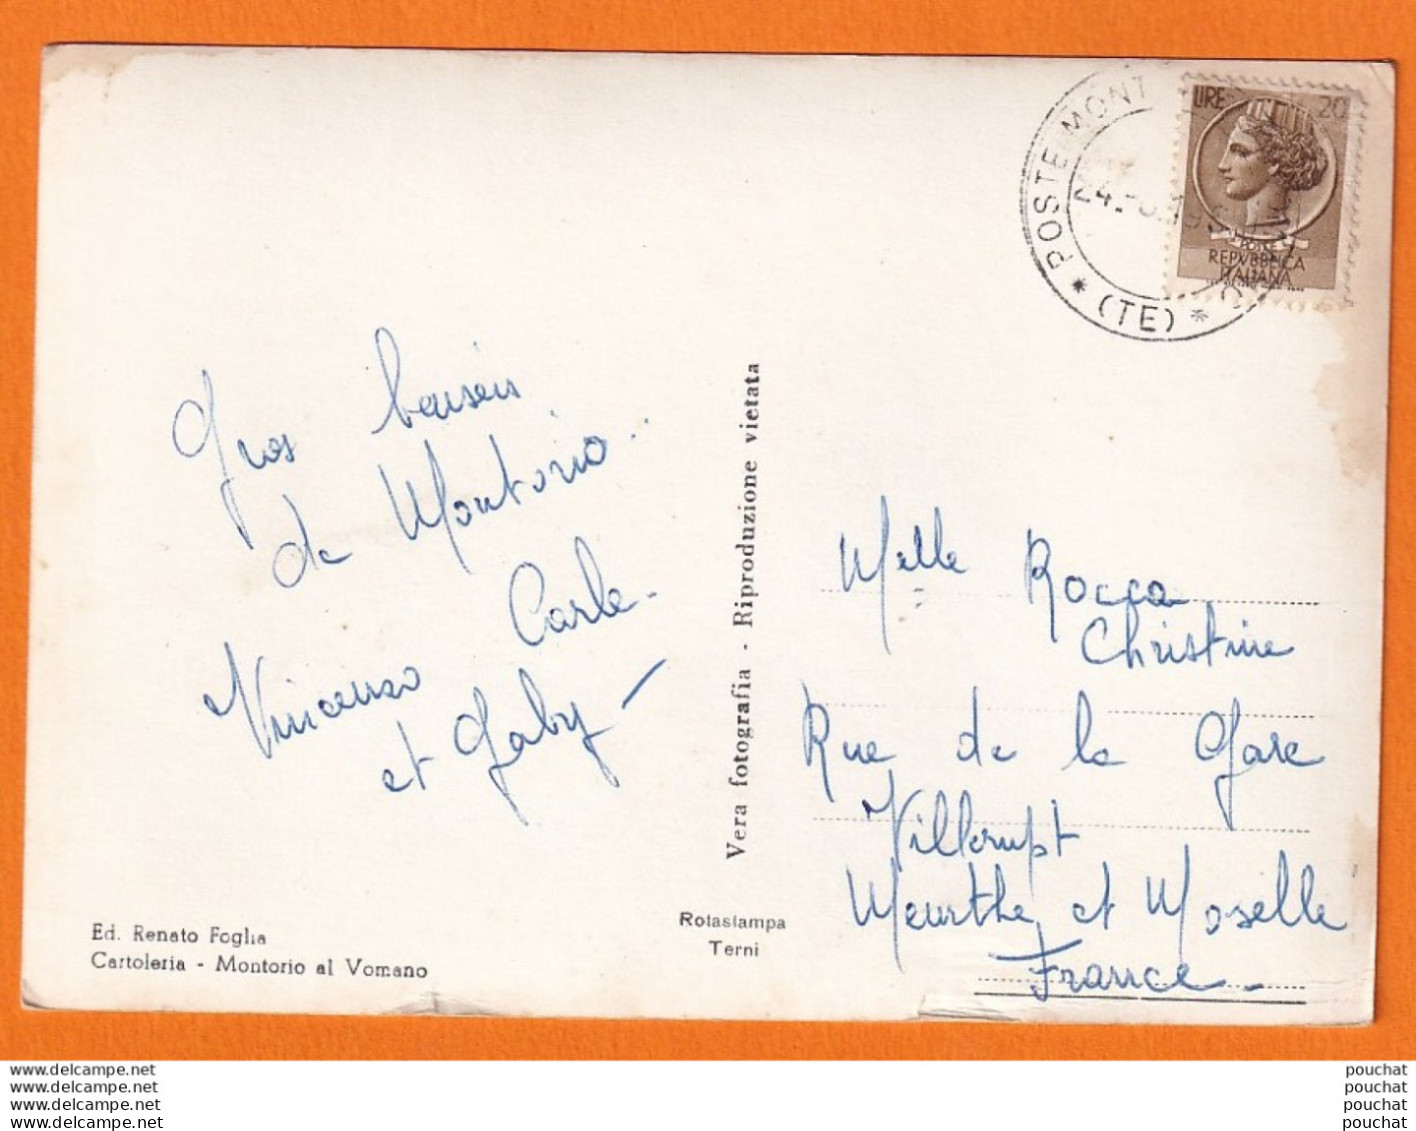 Gros baisers
de Montorio..
Carla.
Vincenzo
et Gaby
Ed. Renato Foglia
Cartoleria - Montorio al Vomano
Vera fotografia - Riproduzione vietata
Rotastampa
Terni
LIRE 20
POSTE
REPVBBLICA
ITALIANA
* POSTE MONT
(TE) *
Melle Rocca
Christine
Rue de la Gare
Villerupt
Meurthe et Moselle
France
www.delcampe.net
www.delcampe.net
www.delcampe.net
www.delcampe.net
pouchat
pouchat
pouchat
pouchat